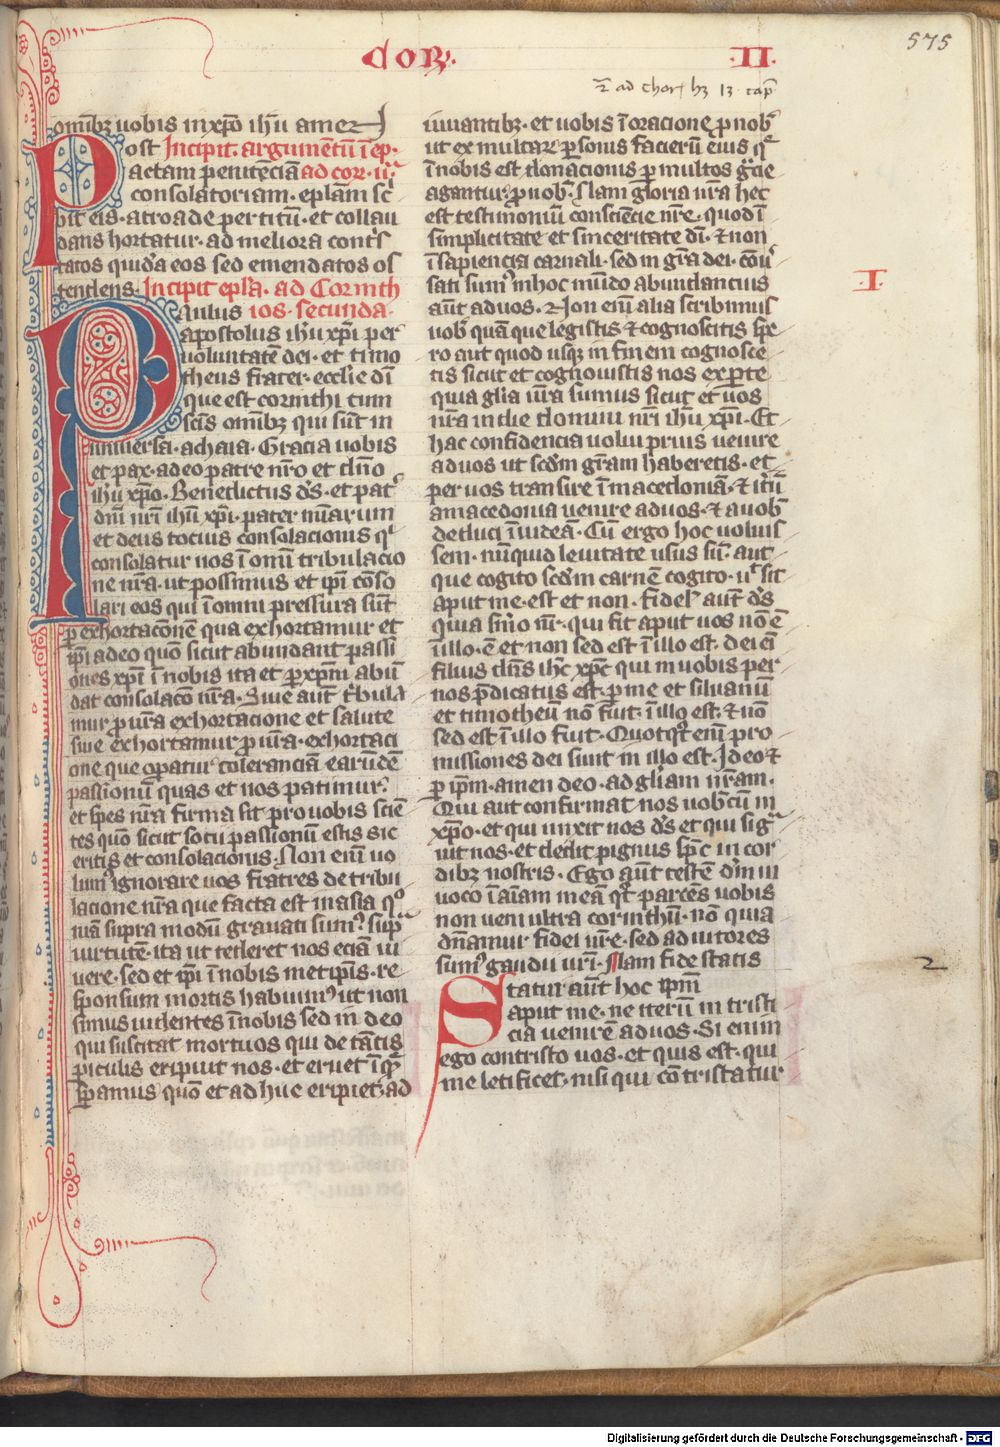 COR II
575
2 ad chor hz 13 cap
omibz uobis in xpo ihu amen
Post Incipit argumentū ī ep
actam penitēciā ad cor ii
consolatoriam eplām sc
bit eis a troade per titū et collau
dans hortatur ad meliora contri
tatos quidā eos sed emendatos os
tendens Incipit epla ad Corinth
Paulus ios secunda
apostolus ihu xpi per
uoluntatē dei et timo
theus frater ecclie dī
que est corinthi cum
scīs omībz qui sūt in
uniuersa achaia Gracia uobis
et pax a deo patre nro et dno
ihu xpo Benedictus ds et pat
dni nri ihu xpi pater miaruum
et deus tocius consolacionis q
consolatur nos ī omi tribulacio
ne nra ut possimus et ipi cōso
lari eos qui ī omni pressura sūt
p exhortacōnē qua exhortamur et
ipi a deo quō sicut abundant passi
ones xpi ī nobis ita et p xpm abū
dat consolacō nra Siue aut tribula
mur p ura exhortacione et salute
siue exhortamur p ura exhortaci
one que opatur tolerancia earūdē
passionū quas et nos patimur
et spes nra firma sit pro uobis sciē
tes quō sicut socii passionū estis sic
eritis et consolacionis Non enī uo
lum ignorare uos fratres de tribu
lacione nra que facta est in asia q
niā supra modū grauati sum sup
uirtutē ita ut tederet nos eciā ui
uere sed et ipi ī nobis metipis re
sponsum mortis habuim ut non
simus fidentes ī nobis sed in deo
qui suscitat mortuos qui de tātis
piculis eripuit nos et eruet ī quē
spamus quō et ad huc eripiet ad
iuuantibz et uobis ī oracione p nob
ut ex multar psonis facierū eius q
ī nobis est donacionis p multos gcie
agantur p nob Nam gloria nra hec
est testimoniū consciēcie nre quod ī
simplicitate et sinceritate dī et non
ī sapiencia carnali sed in gra dei cōu
sati sum in hoc mūdo abundancius
aūt ad uos Non enī alia scribimus
uob quā que legistis et cognoscitis spe
ro aut quod usqz in finem cognosce
tis sicut et cognouistis nos ex parte
quia glia ura sumus sicut et uos
nra in die domini nri ihu xpi Et
hac confidencia uolui prius uenire
ad uos ut scdm gram haberetis et
per uos transire ī macedoniā et itū
a macedonia uenire ad uos et a uob
deduci ī iudeā Cū ergo hoc uoluis
sem nūquid leuitate usus sū aut
que cogito scdm carnē cogito ut sit
aput me est et non fidel aut ds
quia smo nr qui fit aput uos nō ē
ī illo ē et non sed est ī illo est dei eī
filius dns ihc xpc qui in uobis per
nos pdicatus est p me et siluanū
et timotheū nō fuit ī illo est et nō
sed est ī illo fuit Quotqt enī pro
missiones dei sunt in illo est Ideo et
p ipm amen deo ad gliam nram
Qui aut confirmat nos uobcū in
xpo et qui unxit nos ds et qui sig
uit nos et dedit pignus spc in cor
dibz nostris Ego aūt testē dm in
uoco ī aiam meā qt parcēs uobis
non ueni ultra corinthū nō quia
dnamur fidei ure sed adiutores
sum gaudii uri Nam fide statis
Statui aūt hoc ipm
aput me ne iterū in tristi
cia uenirē ad uos Si enim
ego contristo uos et quis est qui
me letificet nisi qui cōtristatur
I
2
Digitalisierung gefördert durch die Deutsche Forschungsgemeinschaft - DFG